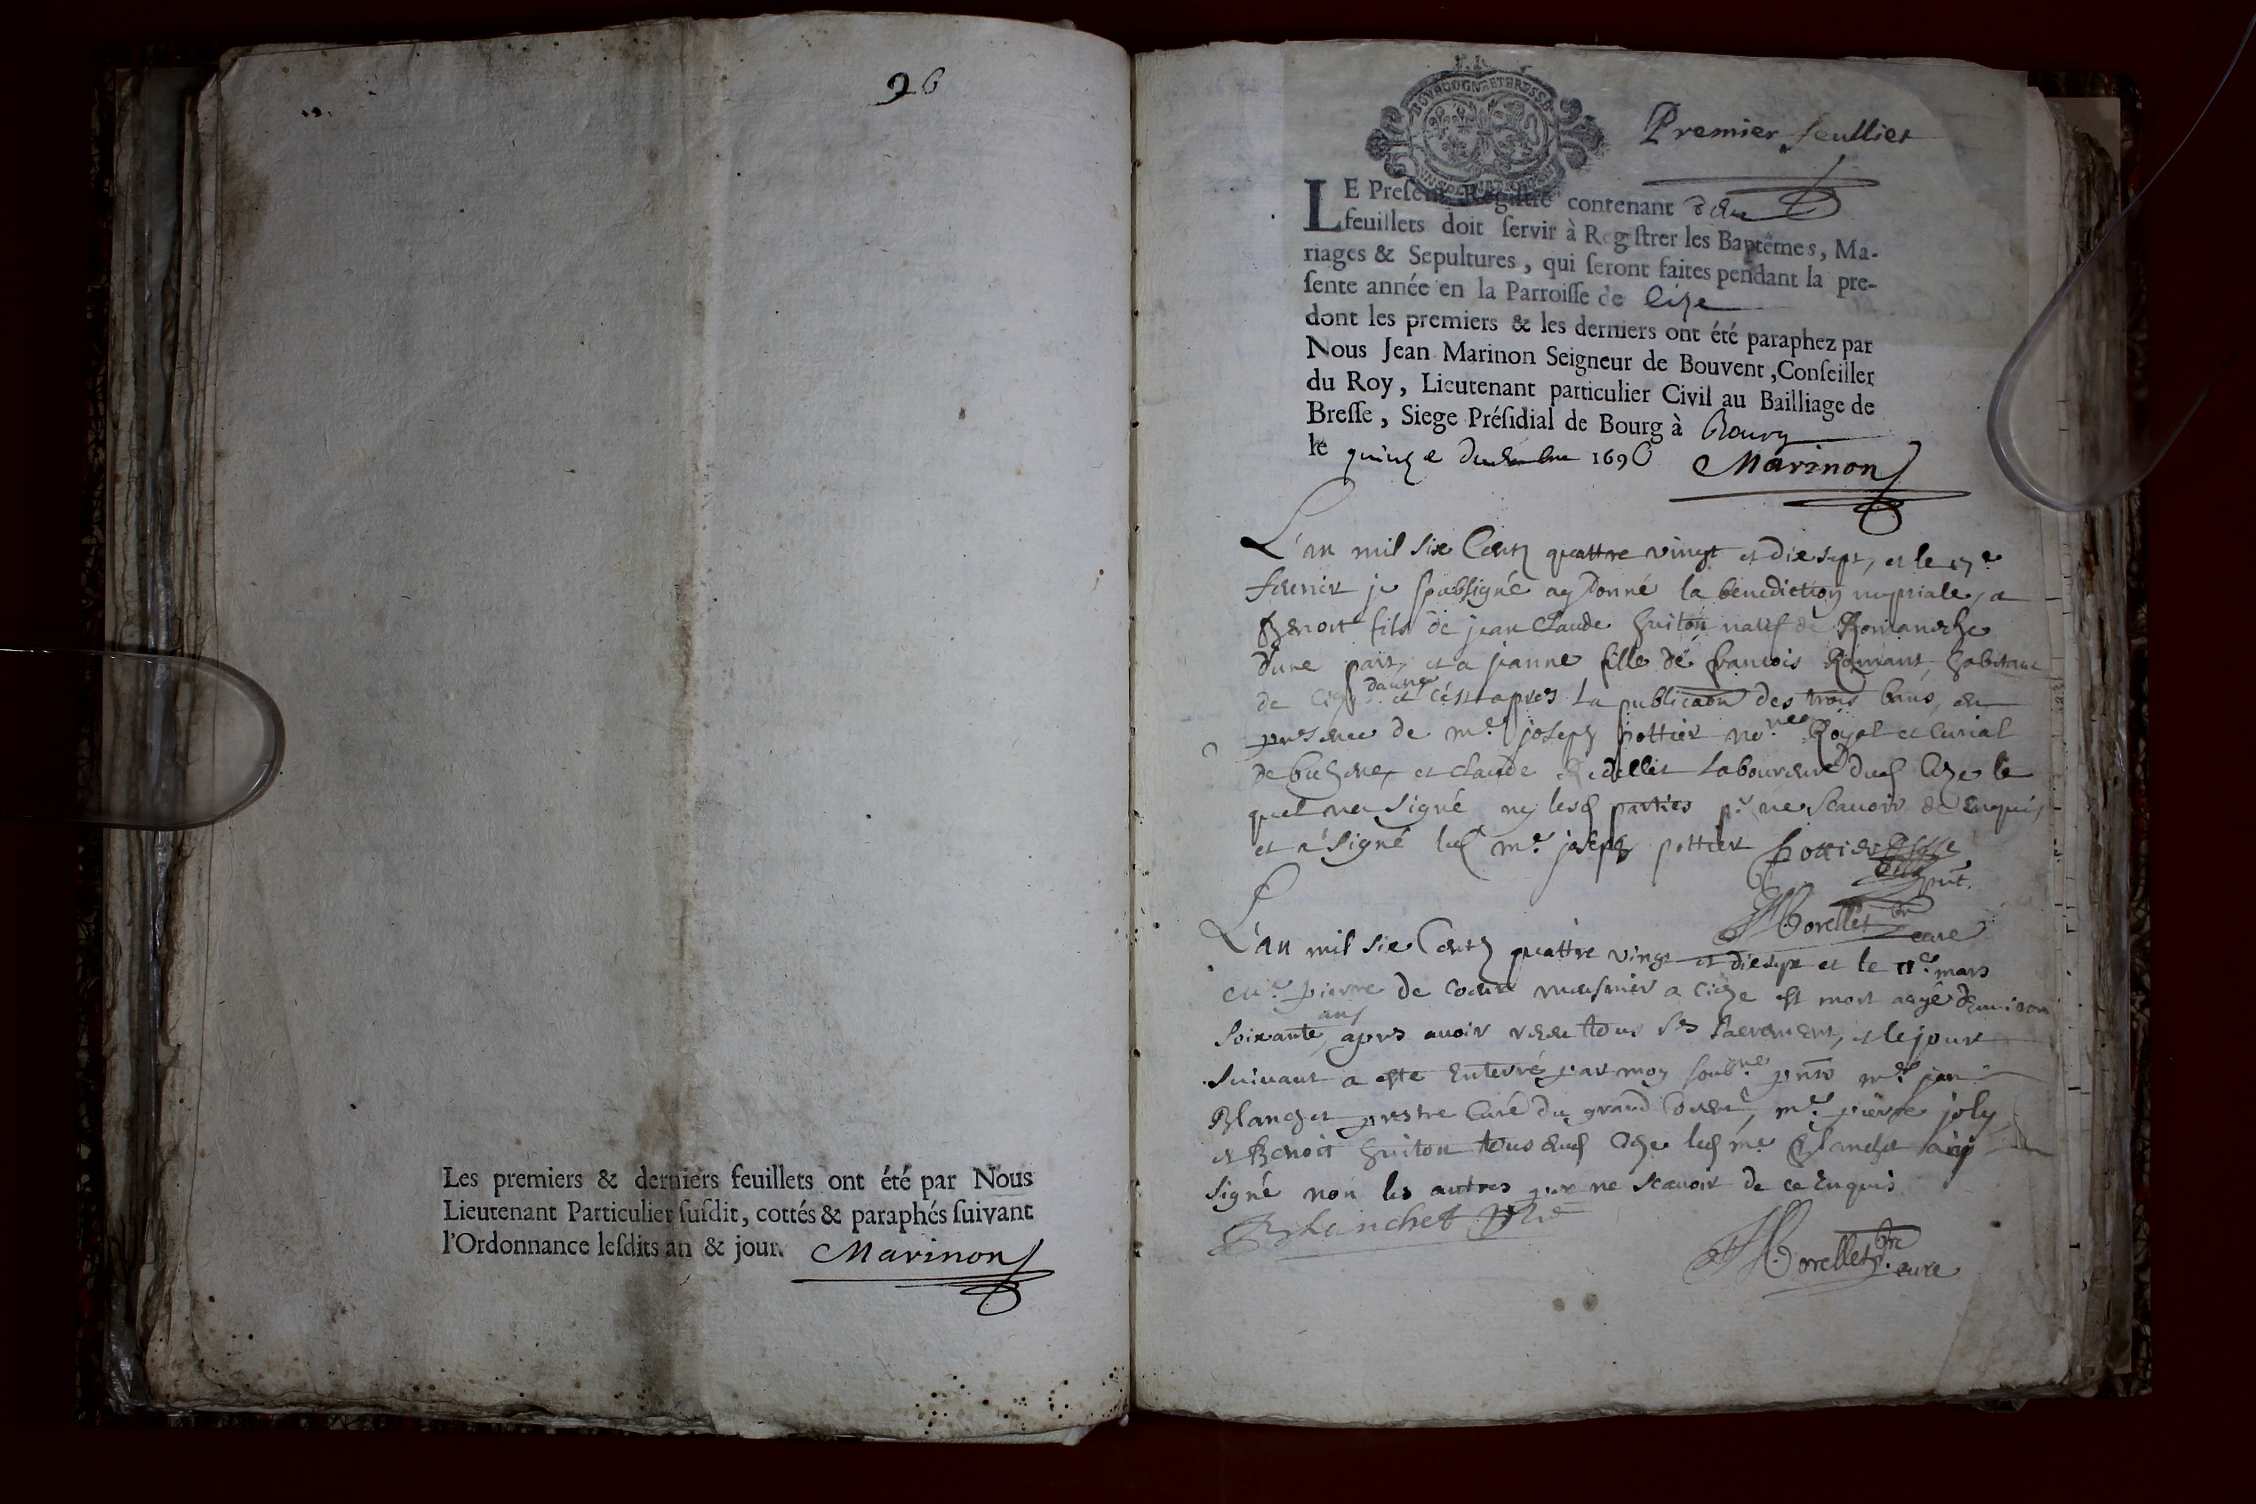 96
Les premiers & derniers feuillets ont été par Nous
Lieutenant Particulier ſuſdit, cottés & paraphés ſuivant
l'Ordonnance leſdits an & jour. Marinon
BOVRGOGNE ET BRESSE
Premier feulliet
LE Preſent Regiſtre contenant
feuillets doit ſervir à Regiſtrer les Baptêmes, Ma-
riages & Sepultures, qui ſeront faites pendant la pre-
ſente année en la Parroiſſe de Cize
dont les premiers & les derniers ont été paraphez par
Nous Jean Marinon Seigneur de Bouvent, Conſeiller
du Roy, Lieutenant particulier Civil au Bailliage de
Breſſe, Siege Préſidial de Bourg à Bourg
le quinze 1696 Marinon
L'an mil six Cents quattre vingt et dix sept, et le 17e
fevrier je soubsigné ay donné la benediction nuptiale, a
Benoit fils de jean Claude Guiton natif de Romaneche
d'une part, et a jeanne fille de francois Romant habitant
de Cize daultre et c'est apres la publicaon des trois bans, en
presence de me joseph pottier nore Royal et Curial
de et Claude laboureur dud Cize le
quel na signé ny lesd parties pr ne scavoir de enquis
et a signé led me joseph pottier Pottier
pnt.
Morellet ptre cure
L'an mil six Cents quattre vingt et dix sept et le 11e mars
pierre de Coeur musnier a Cize est mort aagé denviron
soixante ans, apres avoir receu tous ses sacrements, et le jour
suivant a esté enterré par moy soubné pnts me jean
Blanchet prestre Curé du grand Corent, me pierre joly
et Benoit Guiton tous dud Cize led me Blanchet ayant
signé non les autres pour ne scavoir de ce enquis
Blanchet ptre
Morellet ptre cure